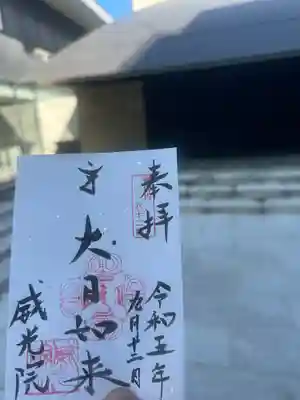 奉拝
令和五年
九月十二日
大日如来
威光院